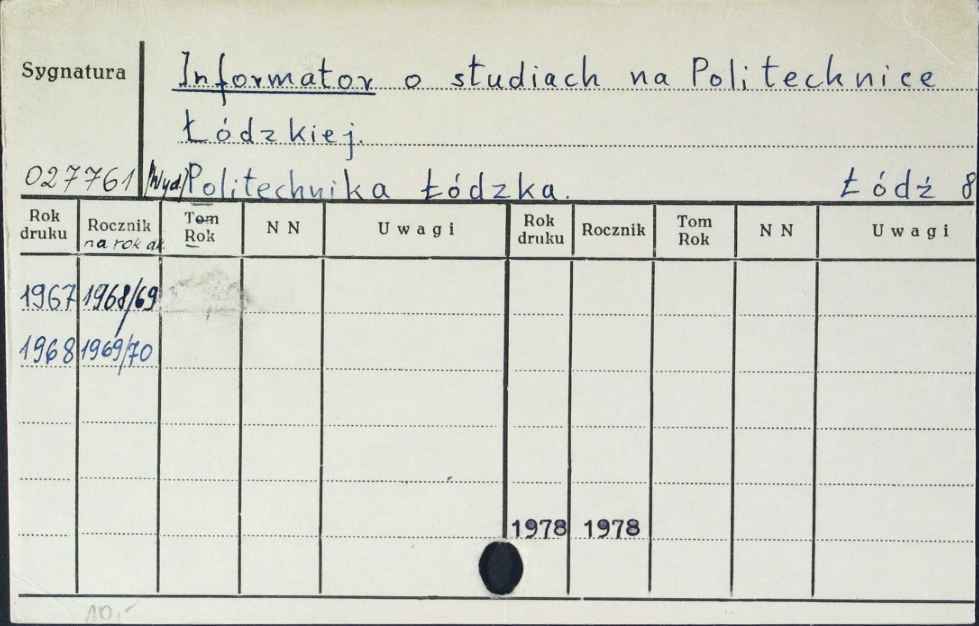 Sygnatura
Informator o studiach na Politechnice
Łódzkiej.
027761 (Wyd) Politechnika Łódzka. Łódź 8
Rok druku Rocznik na rok ak. Tom Rok N N Uwagi Rok druku Rocznik Tom Rok N N Uwagi
1967 1968/69
1968 1969/70
1978 1978
10,-